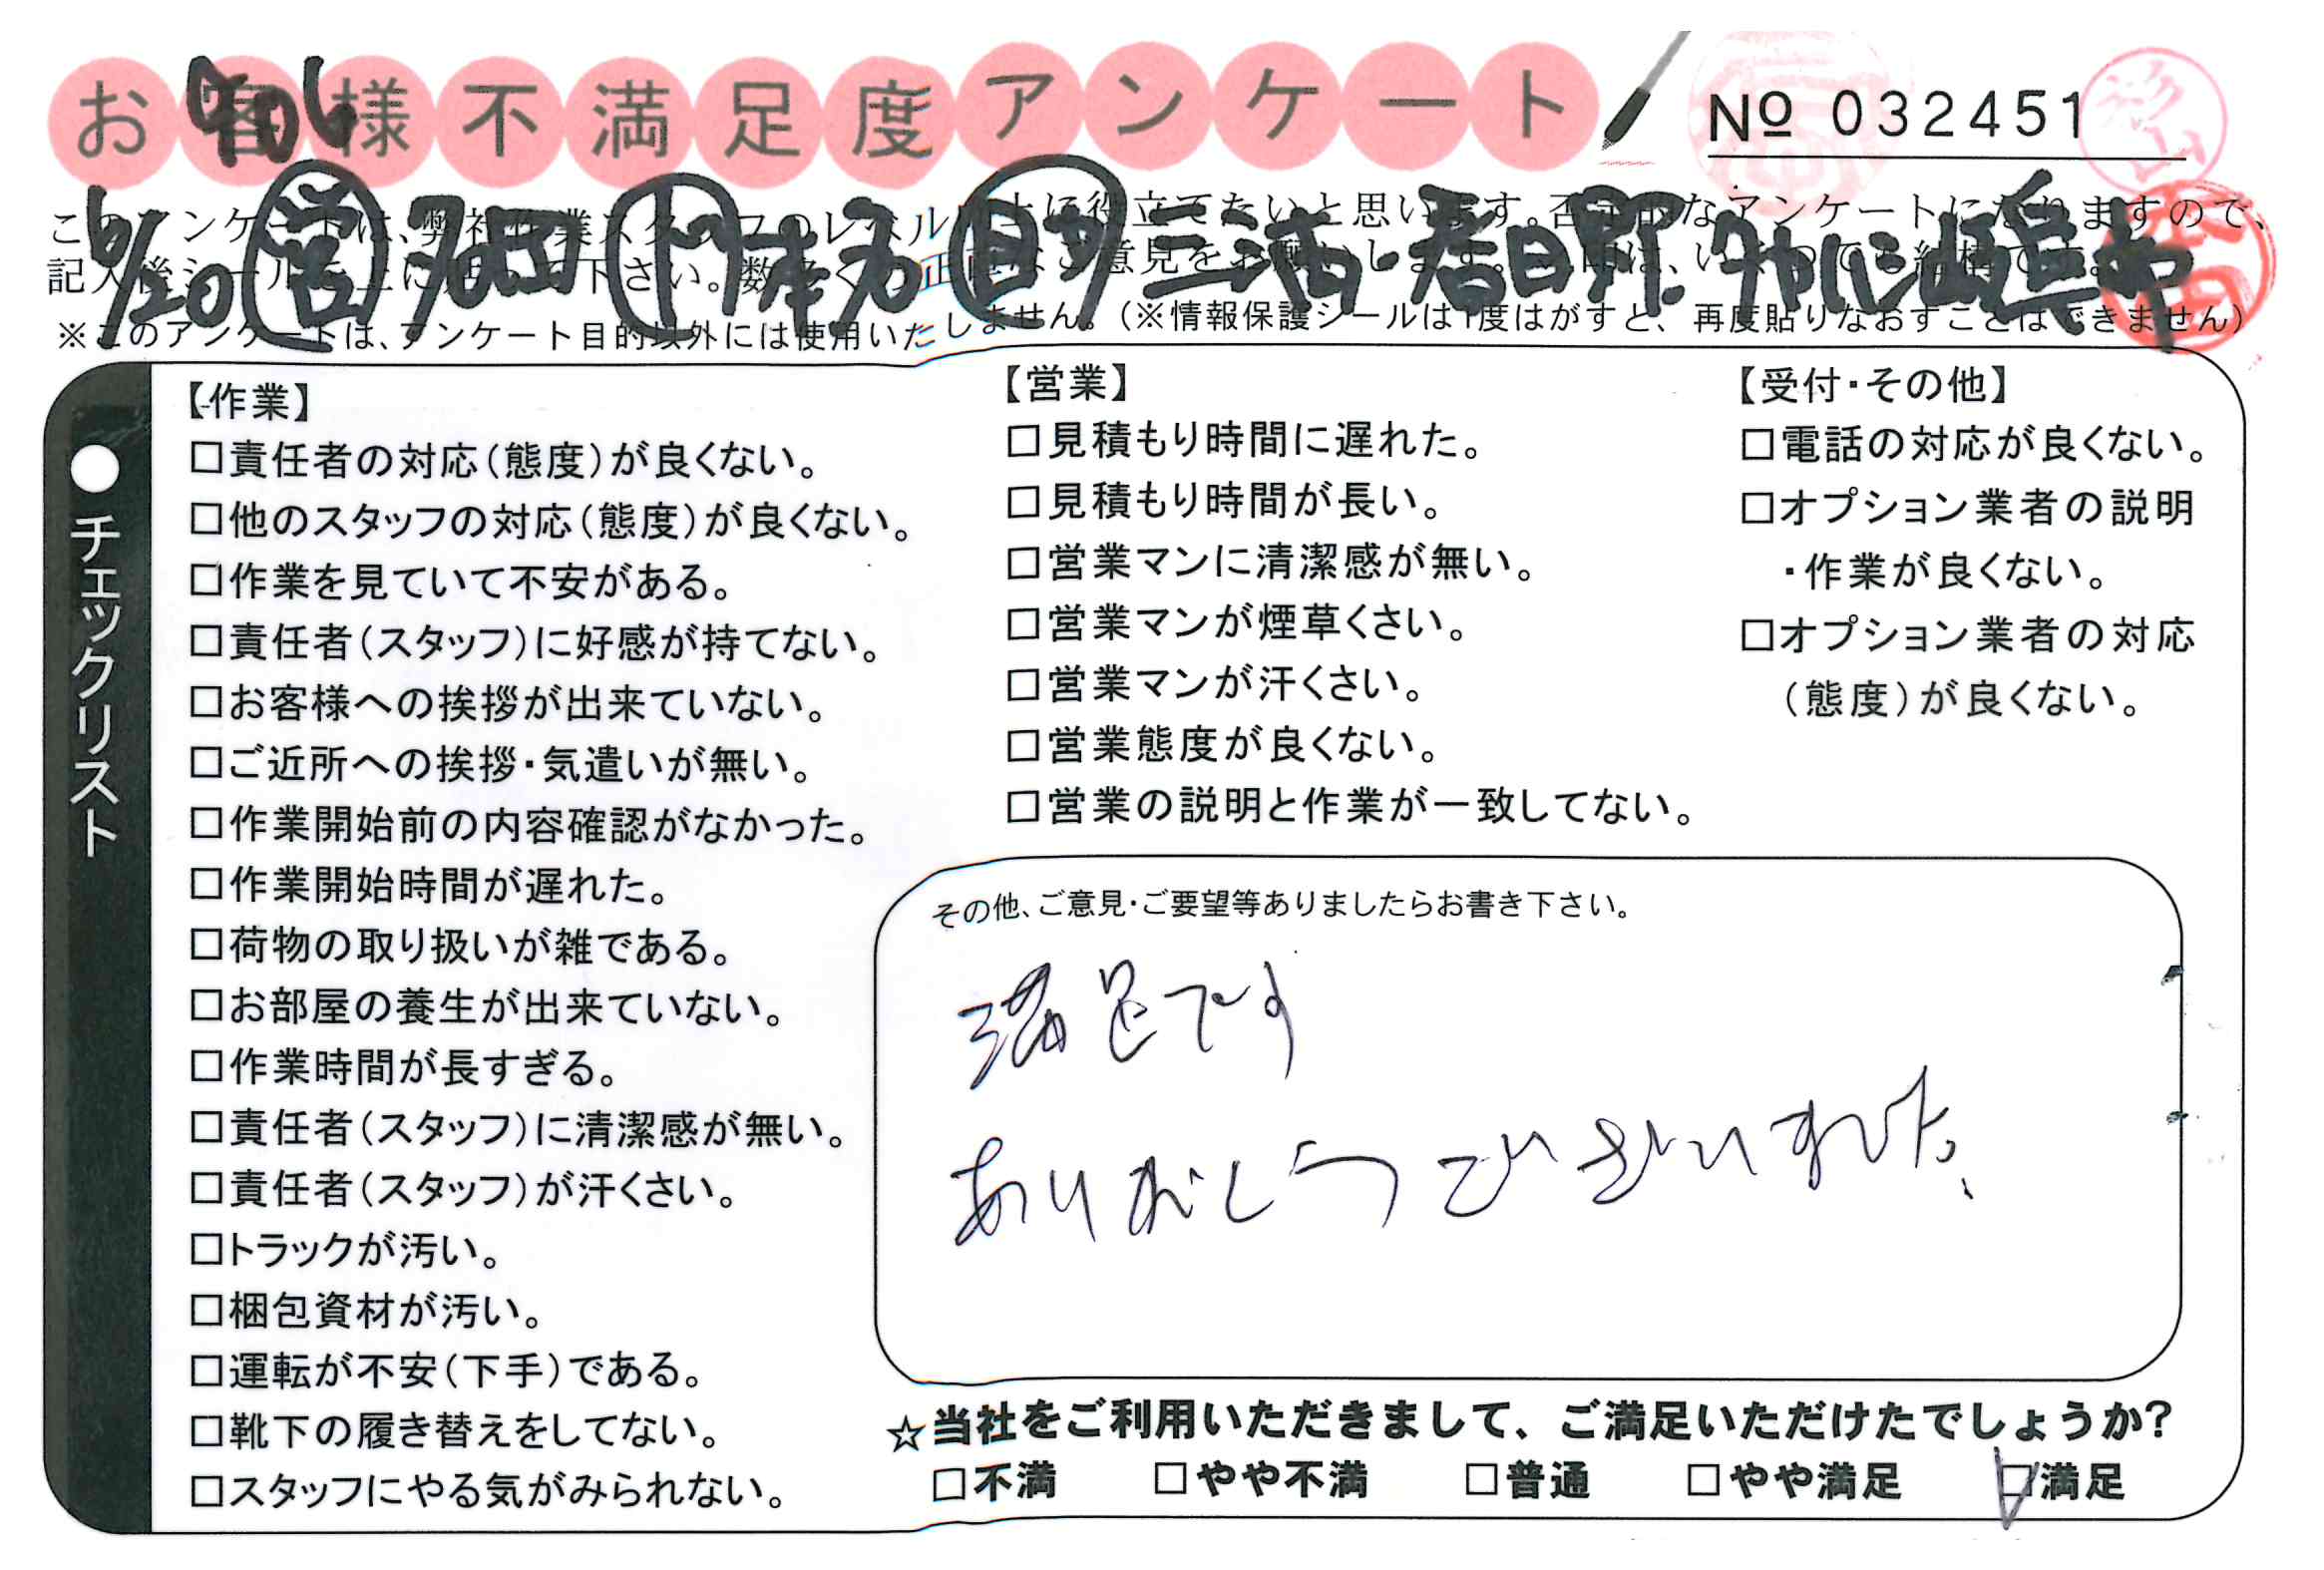 お客様不満足度アンケート
906
No 032451
杉山
このアンケートは、弊社作業スタッフのレベル向上に役立てたいと思います。否定的なアンケートになりますので、
記入後シールを上に貼って下さい。数多くの正直なご意見をお願いします。
※このアンケートは、アンケート目的以外には使用いたしません。(※情報保護シールは1度はがすと、再度貼りなおすことはできません)
6/20 営 ド 助 三浦・春日野
●チェックリスト
【作業】
□責任者の対応(態度)が良くない。
□他のスタッフの対応(態度)が良くない。
□作業を見ていて不安がある。
□責任者(スタッフ)に好感が持てない。
□お客様への挨拶が出来ていない。
□ご近所への挨拶・気遣いが無い。
□作業開始前の内容確認がなかった。
□作業開始時間が遅れた。
□荷物の取り扱いが雑である。
□お部屋の養生が出来ていない。
□作業時間が長すぎる。
□責任者(スタッフ)に清潔感が無い。
□責任者(スタッフ)が汗くさい。
□トラックが汚い。
□梱包資材が汚い。
□運転が不安(下手)である。
□靴下の履き替えをしてない。
□スタッフにやる気がみられない。
【営業】
□見積もり時間に遅れた。
□見積もり時間が長い。
□営業マンに清潔感が無い。
□営業マンが煙草くさい。
□営業マンが汗くさい。
□営業態度が良くない。
□営業の説明と作業が一致してない。
【受付・その他】
□電話の対応が良くない。
□オプション業者の説明
・作業が良くない。
□オプション業者の対応
(態度)が良くない。
その他、ご意見・ご要望等ありましたらお書き下さい。
満足です
ありがとうございました。
☆当社をご利用いただきまして、ご満足いただけたでしょうか?
□不満 □やや不満 □普通 □やや満足 ☑満足